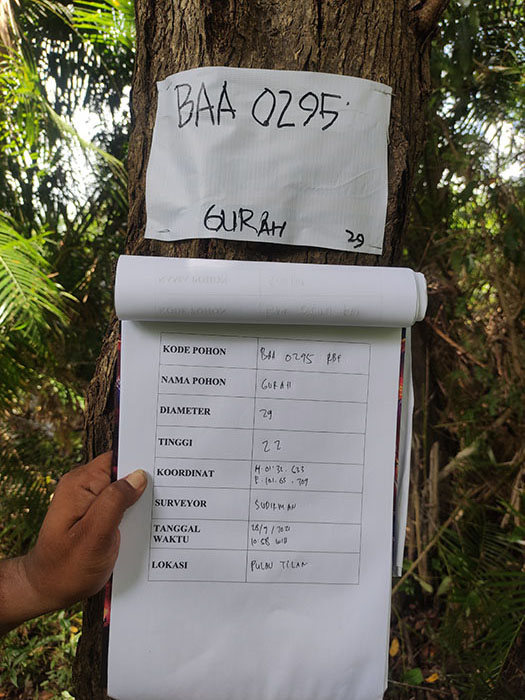 BAA 0295
GURAH
29
KODE POHON BAA 0295 RBF
NAMA POHON GURAH
DIAMETER 29
TINGGI 22
KOORDINAT N.01.32.633
E.101.65.309
SURVEYOR SUDIRMAN
TANGGAL 28/9/2021
WAKTU 10:58 WIB
LOKASI PULAU TILAN